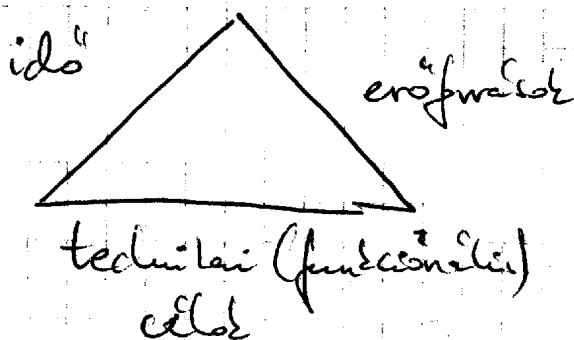 idő
erőforrások
technikai (funkcionális)
célok